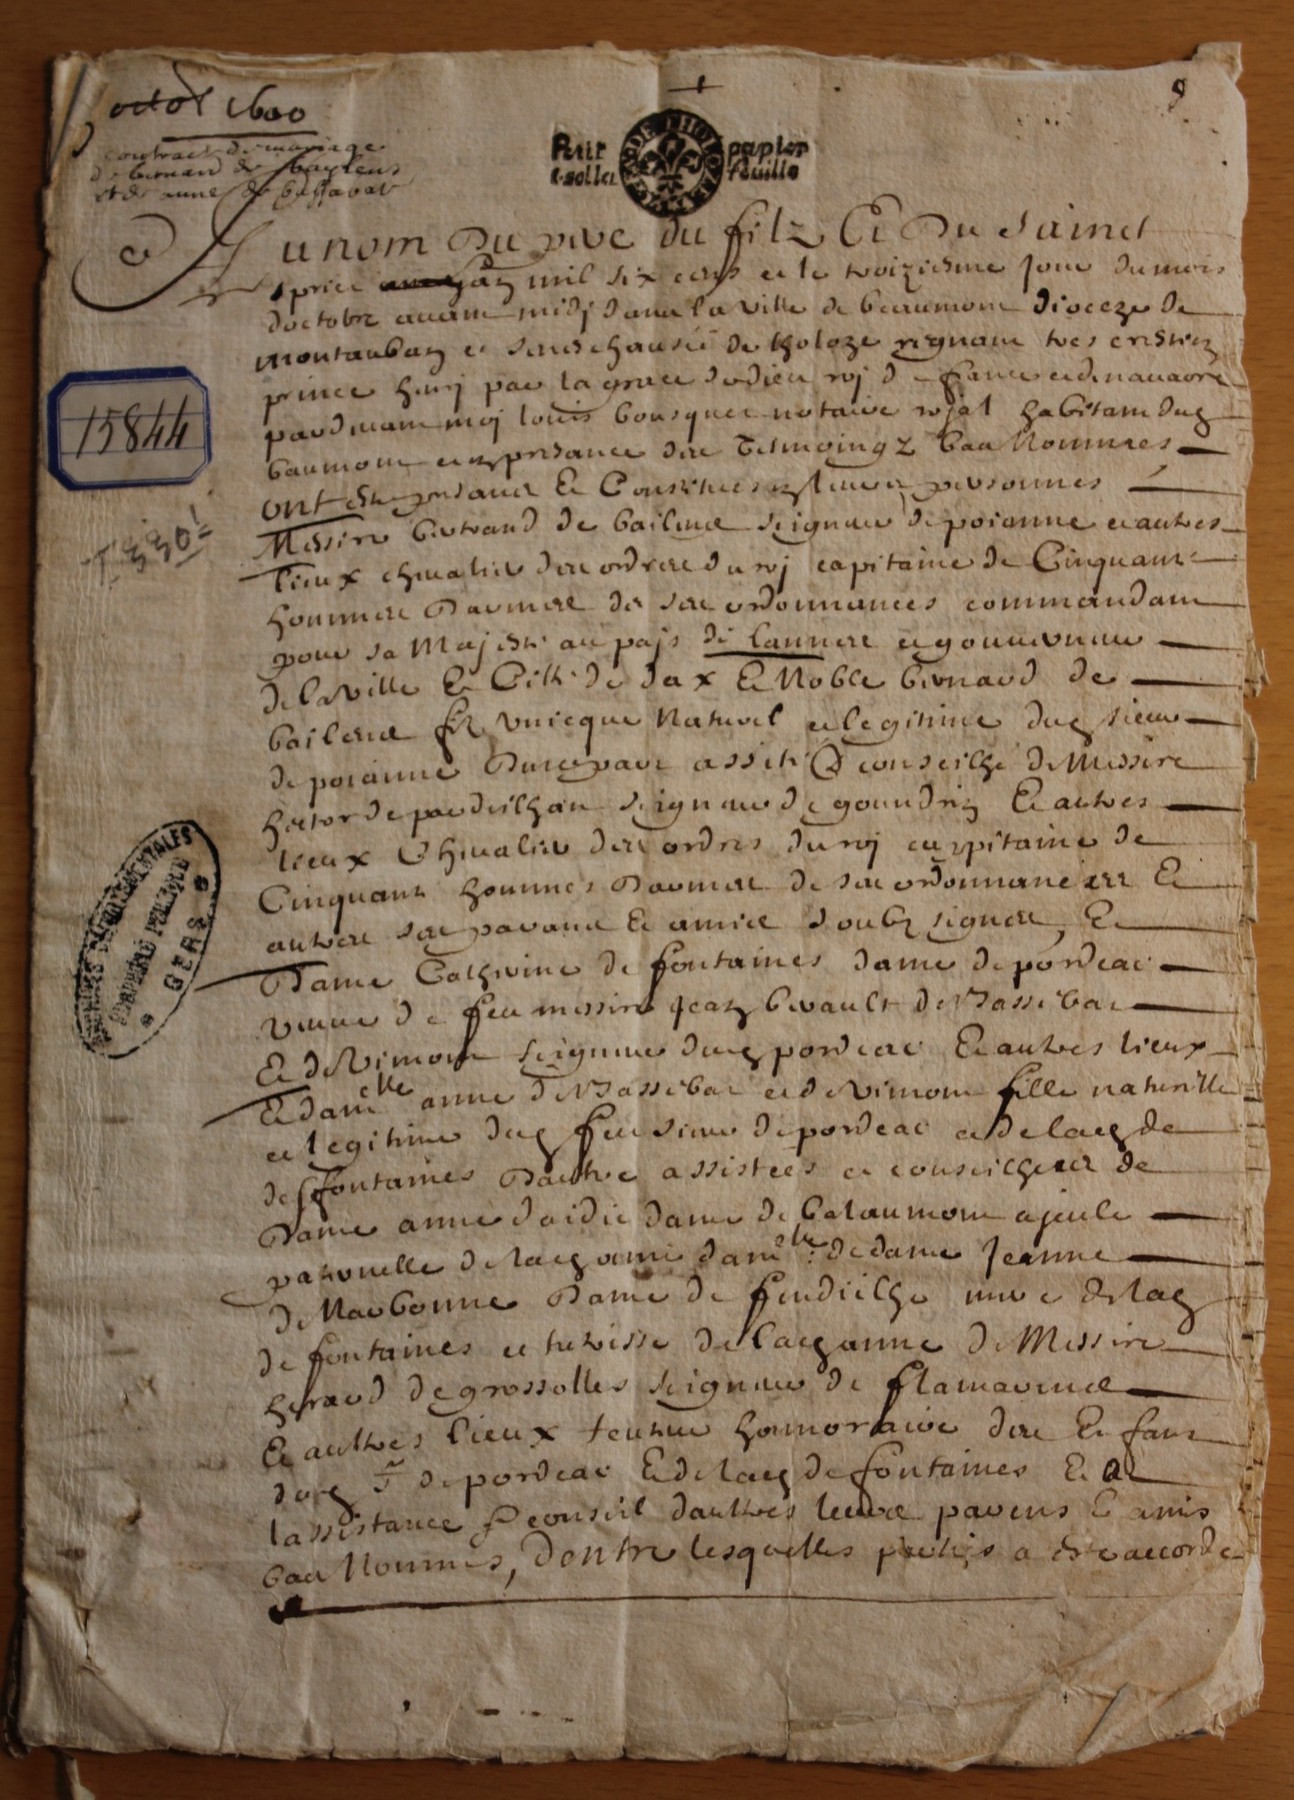 octob 1600
contract de mariage
de bernard de baylens
et de anne de bassabat
Petit papier
feuille
GENERALITE DE THOLOZE
9
Au nom Du pere du filz Et Du Sainct
Sprict lan mil six cens et le troiziesme jour du mois
doctobre avant midj dans la ville de beaumont dioceze de
montauban et seneschaucée de tholoze regnant tres crestien
prince henrj par la grace de dieu roj de france et de navarre
pardevant moj louis bousquet notaire rojal habitant dug
baumont et en presance des tesmoingz bas Nommes
ont este presans Et Constitues en leurs personnes
Messire bertrand de bailens seigneur de poianne et autres
lieux chevalier des ordres du roj capitaine de Cinquante
hommes Darmes de ses ordonnances commandant
pour sa Majeste au pajs de lannes et gouverneur
de la Ville Et Citté de dax Et Noble bernard de
bailens filz unicque Naturel et legitime dug sieur
de poianne Dune part assisté & conseilhé de Messire
hector de pardeilhan seigneur de goundrin Et autres
lieux Chevalier des ordres du roj cappitaine de
Cinquante hommes Darmes de ses ordonnances Et
autres ses parans Et amis soubz signes, Et
Dame Catherine de fontaines dame de pordeac
veuve de feu messire Jean berault de Vassabat
Et de Vimont seigneur dug pordeac Et autres lieux
Et dam.elle anne de Vassabat et de Vimont fille naturelle
et legitime dug feu sieur de pordeac et de lacg de
de fontaines Dautre assistées et conseilhees de
Dame anne daidie dame de balaumont ajeule
paternelle de lacg anne dam.elle de dame Jeanne
de Narbonne Dame de fendeilhe mere de lag
de fontaines et tutrisse de lacg anne de Messire
heraud de grossolles seigneur de flamarens
Et aultres lieux tuteur honnoraire des Enfans
dug Sr de pordeac Et de lacg de fontaines Et a
lassistance & conseil daultres leurs parens Et amis
bas Nommes, Dentre lesquelles parties a este accorde
15844
I 330!
ARCHIVES DEPARTEMENTALES
PROPRIÉTÉ PUBLIQUE
GERS